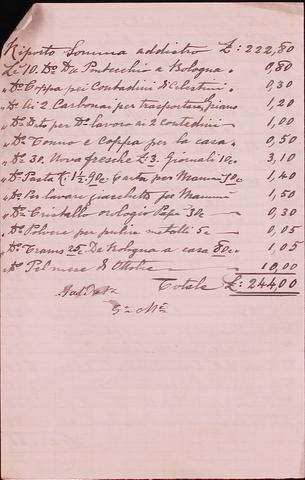 Riporto Somma addietro £: 222,80
Li 10. Dº Da Pontecchio a Bologna. 0,80
" Dº Coppa pei Contadini di Celestini 0,30
" Dº Ai 2 Carbonai per trasportare piano 1,20
" Dº Dato per Dº lavoro ai 2 contadini 1,00
" Dº Tonno e Coppa per la casa. 0,50
" Dº 30. Nova fresche £3. Giornali 10c. 3,10
" Dº Pasta K. 1½. 90c. Carta per Mammà 50c. 1,40
" Dº Per lavare giacchetto per Mammà 1,50
" Dº Cristallo orologio Papà 30c. 0,30
" Dº Polvere per pulire metalli 5c 0,05
" Dº Trams 25c. Da Bologna a casa 80c. 1,05
" Dº Pel mese di Ottobre 10,00
Totale £: 244,00